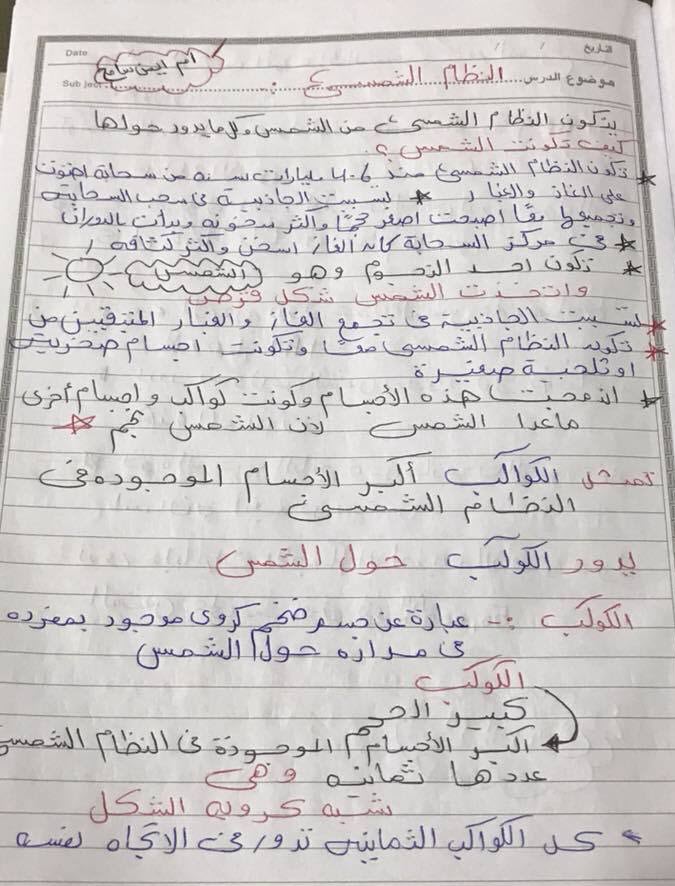 Date / / التاريخ
ام ايمن سامح
Subject موضوع الدرس النظام الشمسى :
يتكون النظام الشمسى من الشمس وكل ما يدور حولها
كيف تكونت الشمس ؟
* تكون النظام الشمسى منذ 4.6 مليارات سنه من سحابة احتوت
على الغاز والغبار * تسببت الجاذبية فى سحب السحابة
وتجمعها معًا اصبحت اصغر حجمًا واكثر سخونه وبدأت بالدوران
* فى مركز السحابة كانه الغاز اسخن واكثر كثافه
* تكون احد النجوم وهو الشمس
واتخذت الشمس شكل قرص
* تسببت الجاذبية فى تجمع الغاز والغبار المتبقيين من
* تكوين النظام الشمسى معًا وتكونت اجسام صخرية
او ثلجية صغيرة
* اندمجت هذه الأجسام وكونت كواكب واجسام أخرى
ماعدا الشمس لان الشمس نجم *
تمثل الكواكب أكبر الأجسام الموجوده فى
النظام الشمسى
يدور الكوكب حول الشمس
الكوكب :- عبارة عن جسم ضخم كروى موجود بمفرده
فى مداره حول الشمس
الكوكب
كبير الحجم
اكبر الأجسام الموجودة فى النظام الشمسى
عددها ثمانيه وهى
شبه كرويه الشكل
كل الكواكب الثمانيه تدور فى الاتجاه نفسه